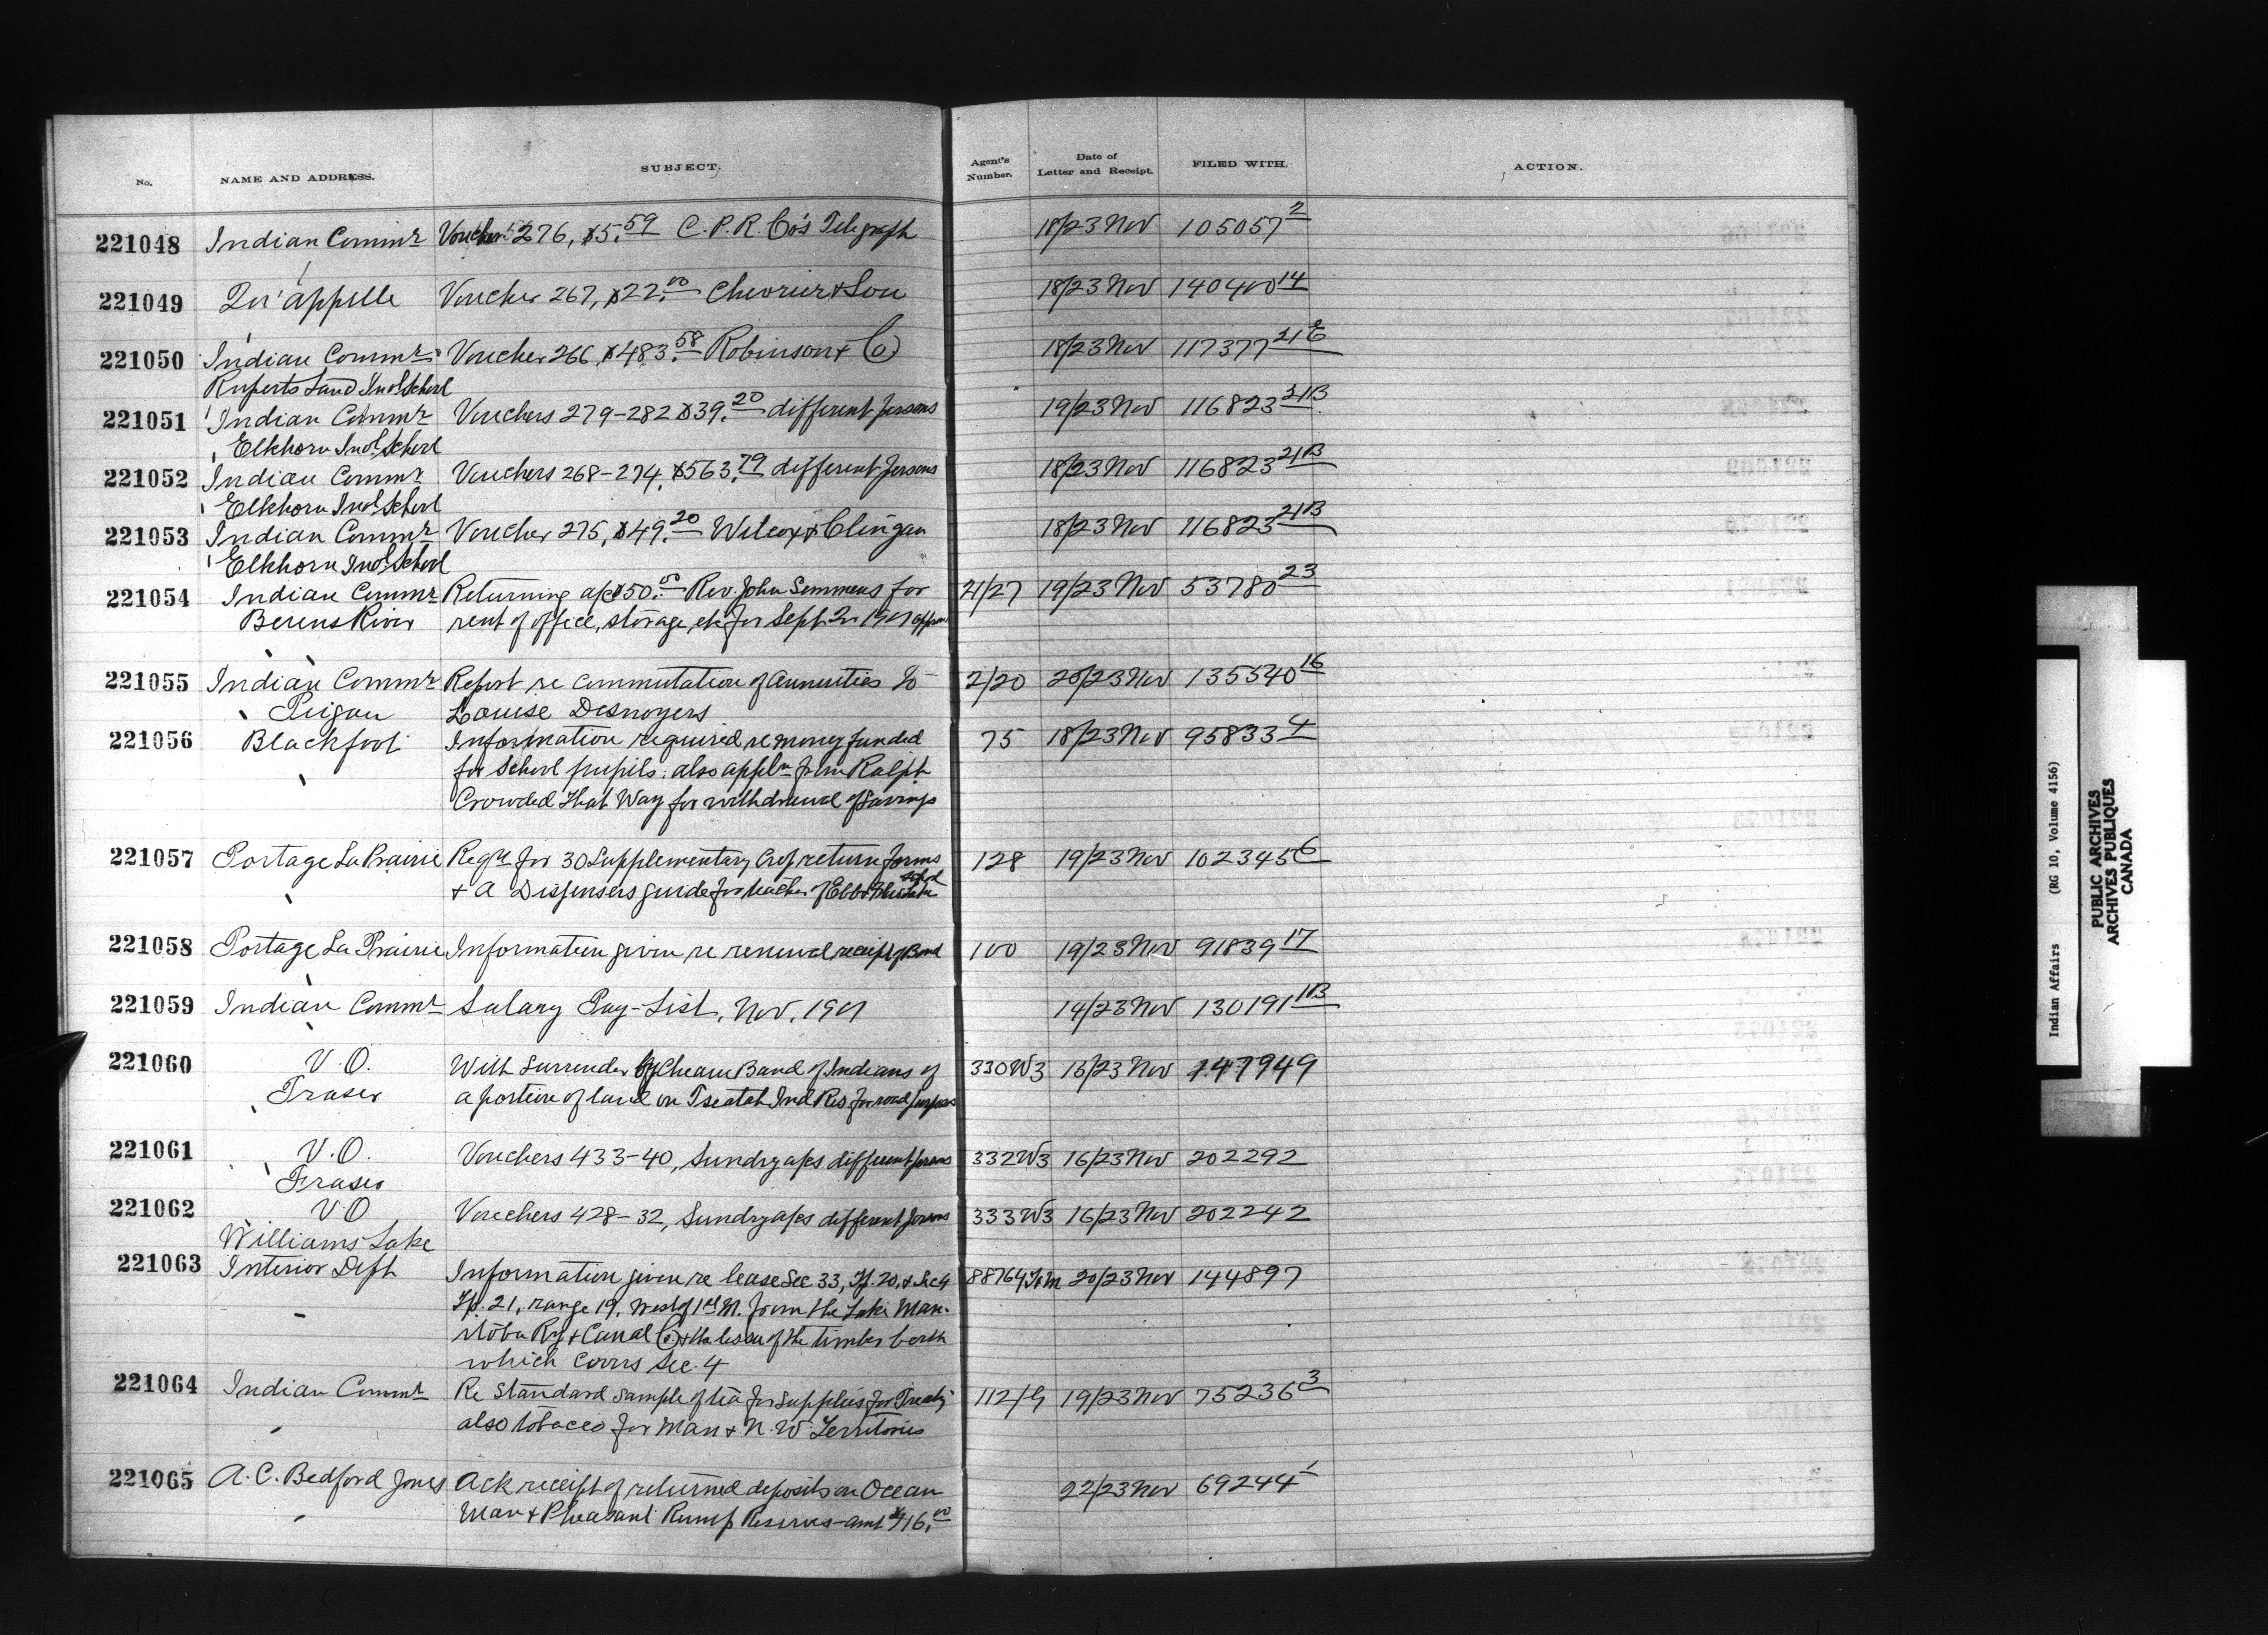 No. NAME AND ADDRESS. SUBJECT. Agent's Number. Date of Letter and Receipt. FILED WITH. ACTION.
221048 Indian Commr Voucher 276, $5.59 C.P.R. Co's Telegraph 18/23 Nov 105057 2
221049 Qu'appelle Voucher 267, $22.00 Chevrier & Son 18/23 Nov 140400 14
221050 Indian Commr Voucher 266 $483.58 Robinson & Co 18/23 Nov 117377 21E
Ruperts Land Indl School
221051 Indian Commr Vouchers 279-282 $39.20 different persons 19/23 Nov 116823 21B
Elkhorn Indl School
221052 Indian Commr Vouchers 268-274, $563.79 different persons 18/23 Nov 116823 21B
Elkhorn Indl School
221053 Indian Commr Voucher 275, $49.20 Wilcox & Clingan 18/23 Nov 116823 21B
Elkhorn Indl School
221054 Indian Commr Returning a/c $50.00 Rev. John Semmens for 21/27 19/23 Nov 53780 23
Berens River rent of office, storage, etc for Sept. Qr 1901
221055 Indian Commr Report re commutation of annuities to 2/20 20/23 Nov 135540 16
Peigan Louise Desnoyers
221056 Blackfoot Information required re money funded 75 18/23 Nov 95833 4
for School pupils: also appln from Ralph
Crowded That Way for withdrawal of savings
221057 Portage La Prairie Reqn for 30 Supplementary Crop return forms 128 19/23 Nov 102345 6
& a Dispensers guide for teacher of Ebb & Flow School
221058 Portage La Prairie Information given re renewal receipt of Bond 100 19/23 Nov 91839 17
221059 Indian Commr Salary Pay-List, Nov. 1901 14/23 Nov 130191 1B
221060 V.O. With Surrender by Cheam Band of Indians of 330W3 16/23 Nov 147949
Fraser a portion of land on Tseatah Ind Res. for road purposes
221061 V.O. Vouchers 433-40, Sundry a/cs different persons 332W3 16/23 Nov 202292
Fraser
221062 V.O Vouchers 428-32, Sundry a/cs different persons 333W3 16/23 Nov 202242
Williams Lake
221063 Interior Dept Information given re lease Sec 33, Tp. 20, & Sec 4 20/23 Nov 144897
Tp. 21, range 19, West of 1st M. from the Lake Man-
itoba Ry & Canal Co & the lessee of the timber berth
which covers Sec. 4
221064 Indian Commr Re Standard sample of tea for supplies for Treaty 112/G 19/23 Nov 75236 3
also tobacco for Man & N.W. Territories
221065 A.C. Bedford Jones Ack receipt of returned deposits on Ocean 22/23 Nov 69244 1
Man & Pheasant Rump Reserves - amt $416.00
Indian Affairs (RG 10, Volume 4156)
PUBLIC ARCHIVES
ARCHIVES PUBLIQUES
CANADA